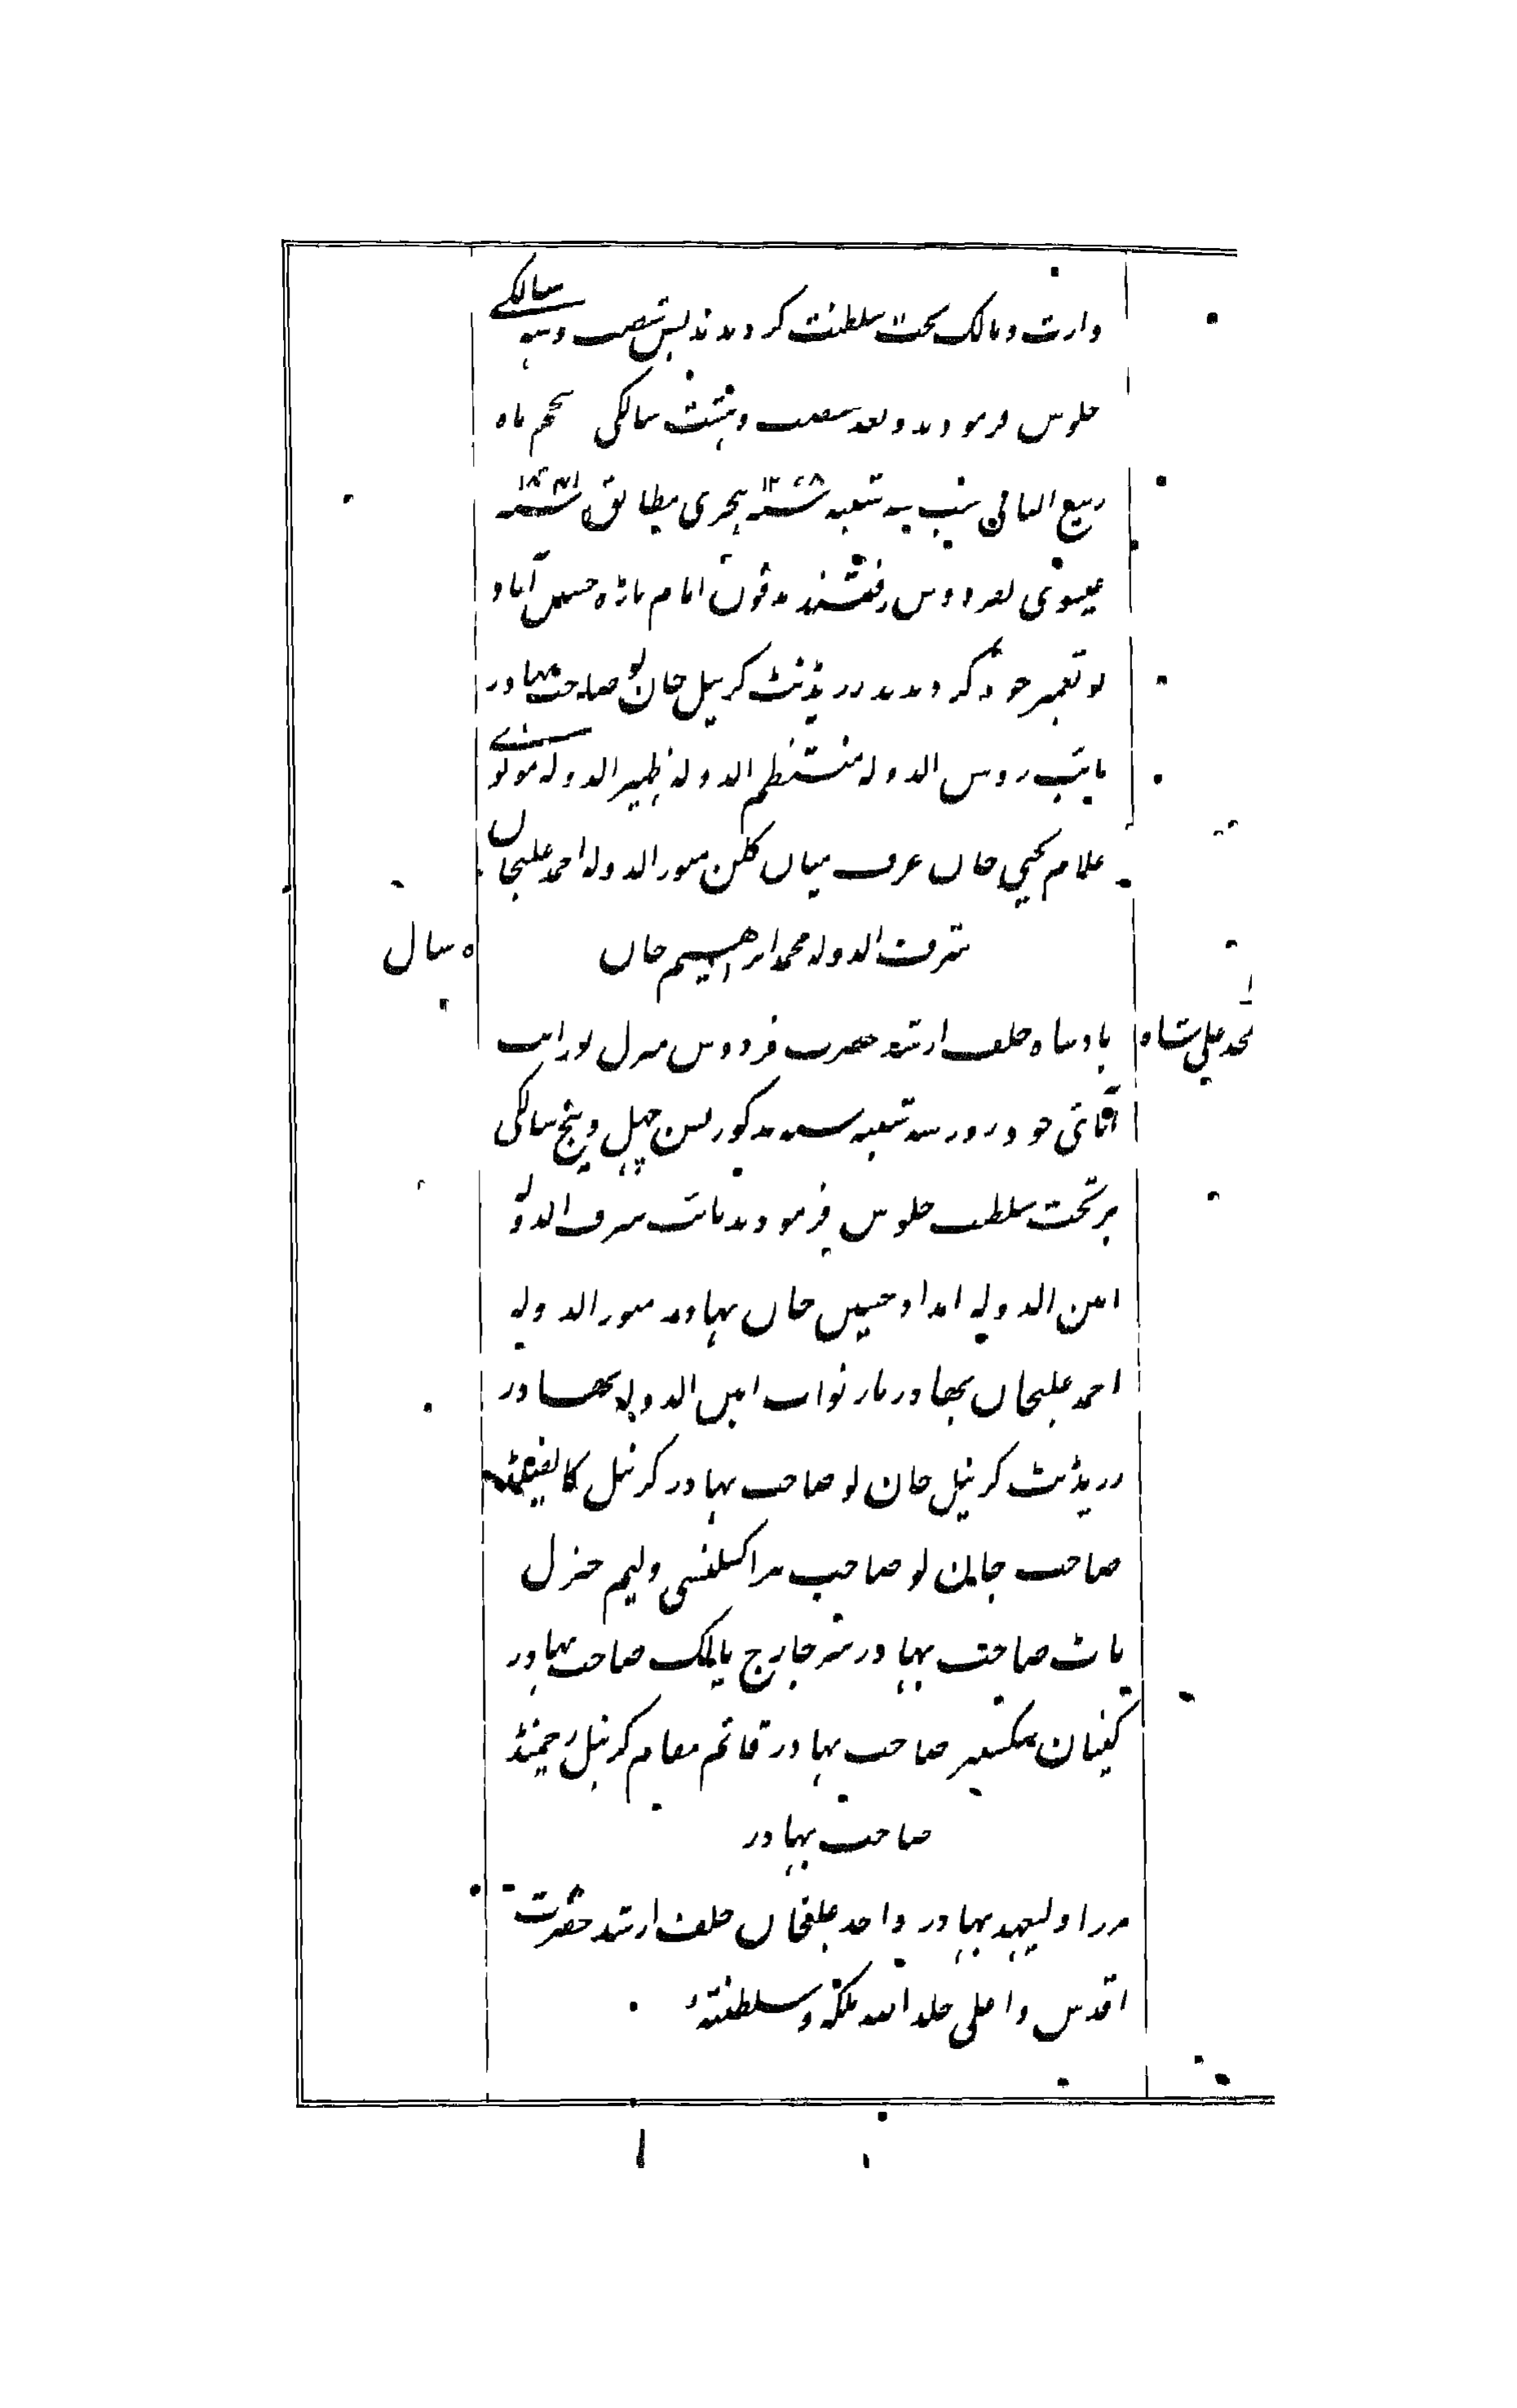 وارث و مالک تخت سلطنت گردیدند بسن شصت و سه سالگی
جلوس فرمودند و بعد شصت و هشت سالگی پنجم ماه
ربیع الثانی شب سه شنبه ۱۲۵۸ هجری مطابق ۱۸۴۲
عیسوی بفردوس رفتند مدفون امام باڑه حسین آباد
نو تعمیر خود گردیدند رزیڈنٹ کرنیل جان لو صاحب بهادر
نائب روشن الدوله منتظم الدوله ظهیر الدوله مولوی
غلام یحیی خاں عرف میاں کلن منور الدوله احمد علیخاں
شرف الدوله محمد ابراهیم خاں
۵ سال
محمد علی شاه
بادشاه خلف ارشد حضرت فردوس منزل نور الله
آقائی خود روز سه شنبه سنه مذکور بسن چهل و پنج سالگی
بر تخت سلطنت جلوس فرمودند نائب شرف الدوله
امین الدوله امداد حسین خاں بهادر منور الدوله
احمد علیخاں بهادر باز نواب امین الدوله بهادر
رزیڈنٹ کرنیل جان لو صاحب بهادر کرنل کالفیلڈ
صاحب جان لو صاحب هز اکسلنسی ولیم جنرل
ناٹ صاحب بهادر مستر جارج پالک صاحب بهادر
کپتان شکسپیر صاحب بهادر قائم مقام کرنیل رچمنڈ
صاحب بهادر
مرزا ولیعهد بهادر واجد علیخاں خلف ارشد حضرت
اقدس و اعلی خلد الله ملکه و سلطنته